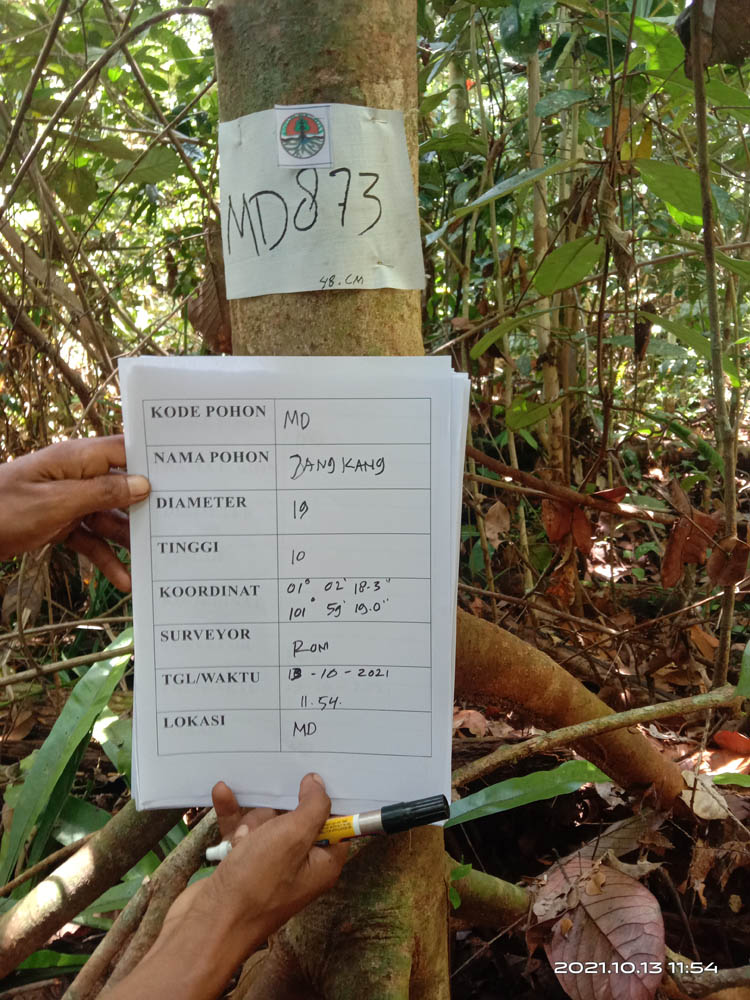 MD873
48.CM
KODE POHON MD
NAMA POHON JANGKANG
DIAMETER 19
TINGGI 10
KOORDINAT 01° 02' 18.3"
101° 59' 19.0"
SURVEYOR ROM
TGL/WAKTU 13-10-2021
11.54.
LOKASI MD
2021.10.13 11:54